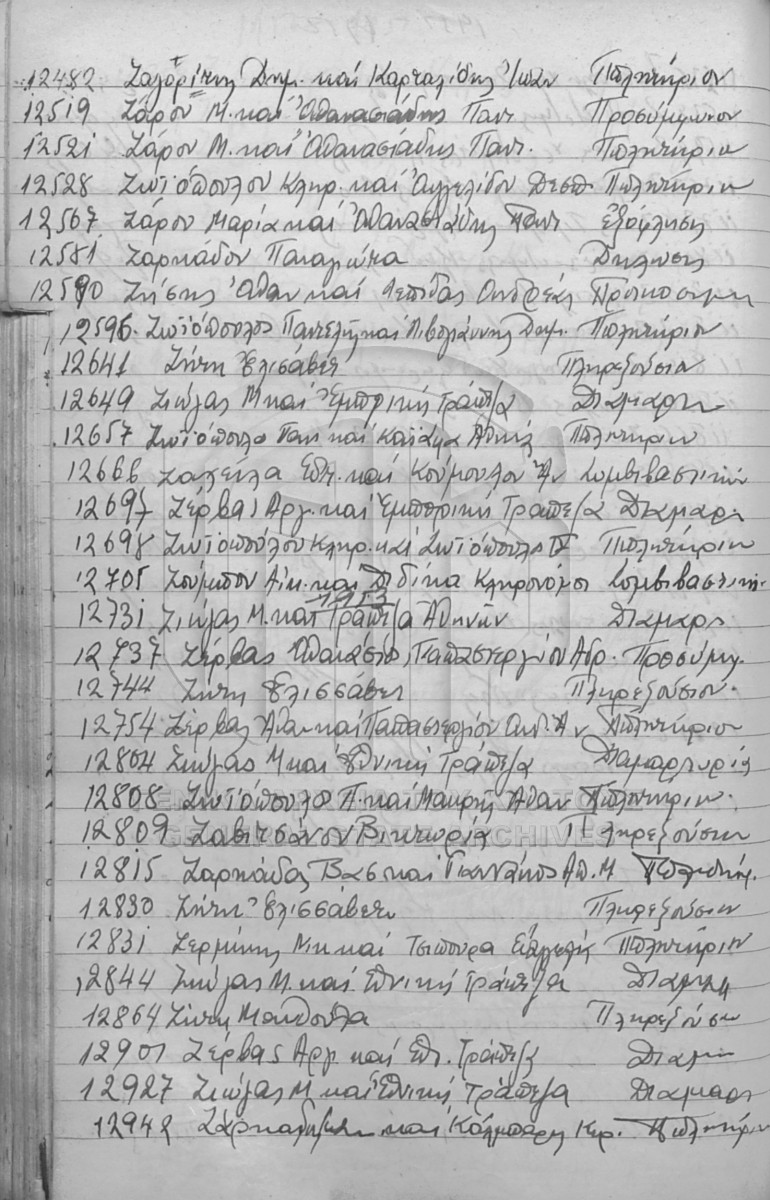 12482 Ζαγορίτης Δημ. και Καρταλίδης Ιωαν Πωλητήριον
12519 Ζάρου Μ. και Αθανασιάδης Παντ Προσύμφωνον
12521 Ζάρου Μ. και Αθανασιάδης Παντ. Πωλητήριον
12528 Ζωϊοπούλου Κληρ. και Αγγελίδου Δεσπ. Πωλητήριον
12567 Ζάρου Μαρία και Αθανασιάδης Παντ Εξόφλησις
12581 Ζαρκάδου Παναγιώτα Δήλωσις
12590 Ζήσης Αθαν και Λεπίδας Ανδρέας
12596. Ζωϊόπουλος Παντελής και Λιβογιάννης Δημ. Πωλητήριον
12641 Ζήση Ελισάβετ Πληρεξούσιον
12649 Ζιώγας Μ και Εμπορική Τράπεζα Διαμαρτ
12657 Ζωϊόπουλο Παν και Πωλητήριον
12666 και Κούμουλου Αν Συμβιβαστικόν
12697 Ζέρβας Αργ. και Εμπορική Τράπεζα Διαμαρ
12698 Ζωϊοπούλου Κληρ. και Ζωϊόπουλο Π Πωλητήριον
12705 Αικ. και Κληρονόμοι Συμβιβαστικ.
1953
12731 Ζιώγας Μ. και Τράπεζα Αθηνών Διαμαρ
12737 Ζέρβας Αθανάσιος, Παπαστεργίου Ανδρ. Προσύμφ.
12744 Ζήση Ελισσάβετ Πληρεξούσιον.
12754 Ζέρβας Αθαν και Παπαστεργίου Πωλητήριον
12804 Ζιώγας Μ και Εθνική Τράπεζα Διαμαρτυρία
12808 Ζωϊόπουλο Π. και Μαυρής Αθαν Πωλητήριον.
12809 Ζαβιτσάνου Βικτωρία Πληρεξούσιον
12815 Ζαρκάδας Βασ και Γιαννάκος Απ. Μ Πωλητήρ.
12830 Ζήση Ελισσάβετ Πληρεξούσιον
12831 Ζερμίνης Μιχ και Τσιπουρα Ευαγγελής Πωλητήριον
12844 Ζιώγας Μ. και Εθνική Τράπεζα Διαμαρ
12864 Ζήση Πληρεξούσιον
12901 Ζέρβας Αργ και Εθν. Τράπεζα Διαμ
12927 Ζιώγας Μ. και Εθνική Τράπεζα Διαμαρτ
12942 και Κάλμπαρη Κυρ. Πωλητήριον